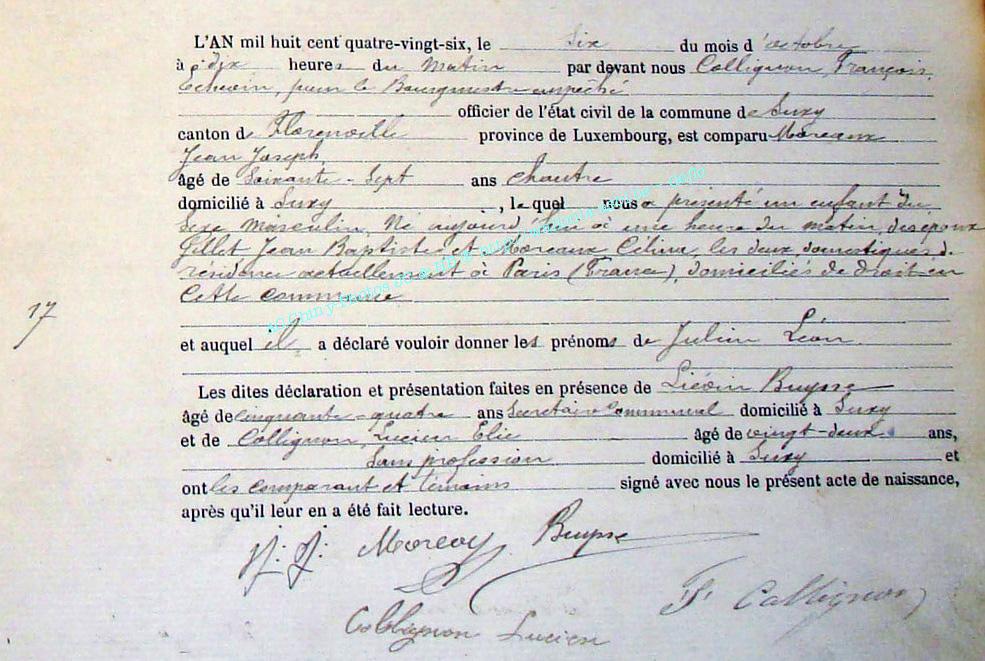 L'AN mil huit cent quatre-vingt-six, le six du mois d'octobre
à dix heures du matin par devant nous Collignon, François,
Echevin, pour le Bourgmestre empêché
officier de l'état civil de la commune de Suxy
canton de Florenville province de Luxembourg, est comparu Moreaux
Jean Joseph,
âgé de Soixante-Sept ans chantre
domicilié à Suxy, lequel nous a présenté un enfant du
sexe masculin, Né aujourd'hui à une heure du matin, des époux
Gillet Jean Baptiste et Moreaux Céline, les deux domestiques, de
résidence actuellement à Paris (France), domiciliés de droit en
cette commune
17
et auquel il a déclaré vouloir donner les prénoms de Julien Léon.
Les dites déclaration et présentation faites en présence de Liévin Buysse
âgé de cinquante-quatre ans Secrétaire Communal domicilié à Suxy
et de Collignon, Lucien Elie âgé de vingt-deux ans,
Sans profession domicilié à Suxy et
ont les comparant et témoins signé avec nous le présent acte de naissance,
après qu'il leur en a été fait lecture.
J. J. Moreay Buysse
F. Collignon
Collignon Lucien